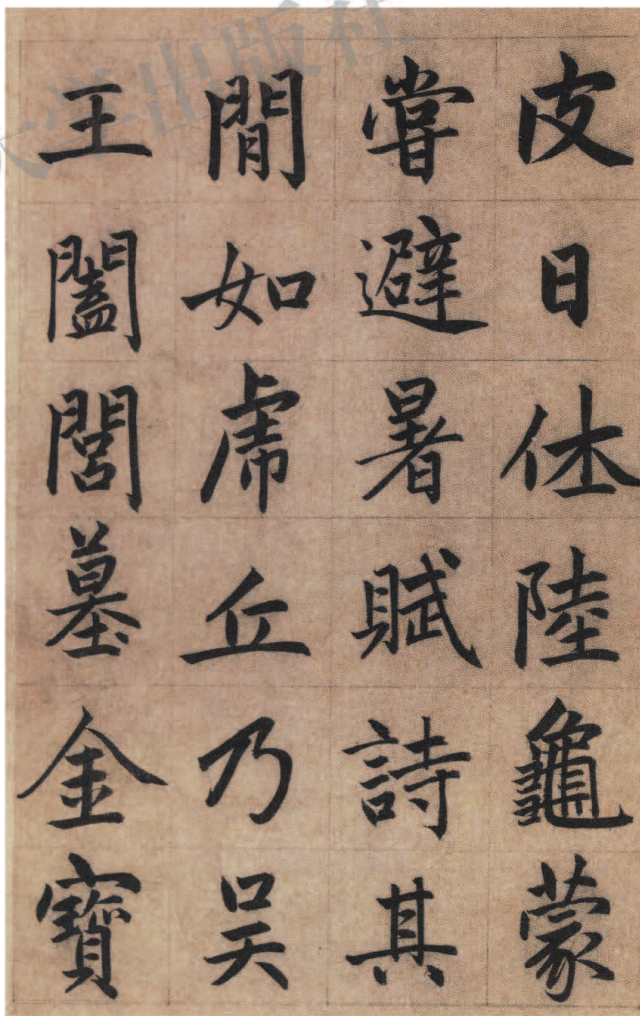 皮日休陸龜蒙
嘗避暑賦詩其
間如虎丘乃吳
王闔閭墓金寶
出版社